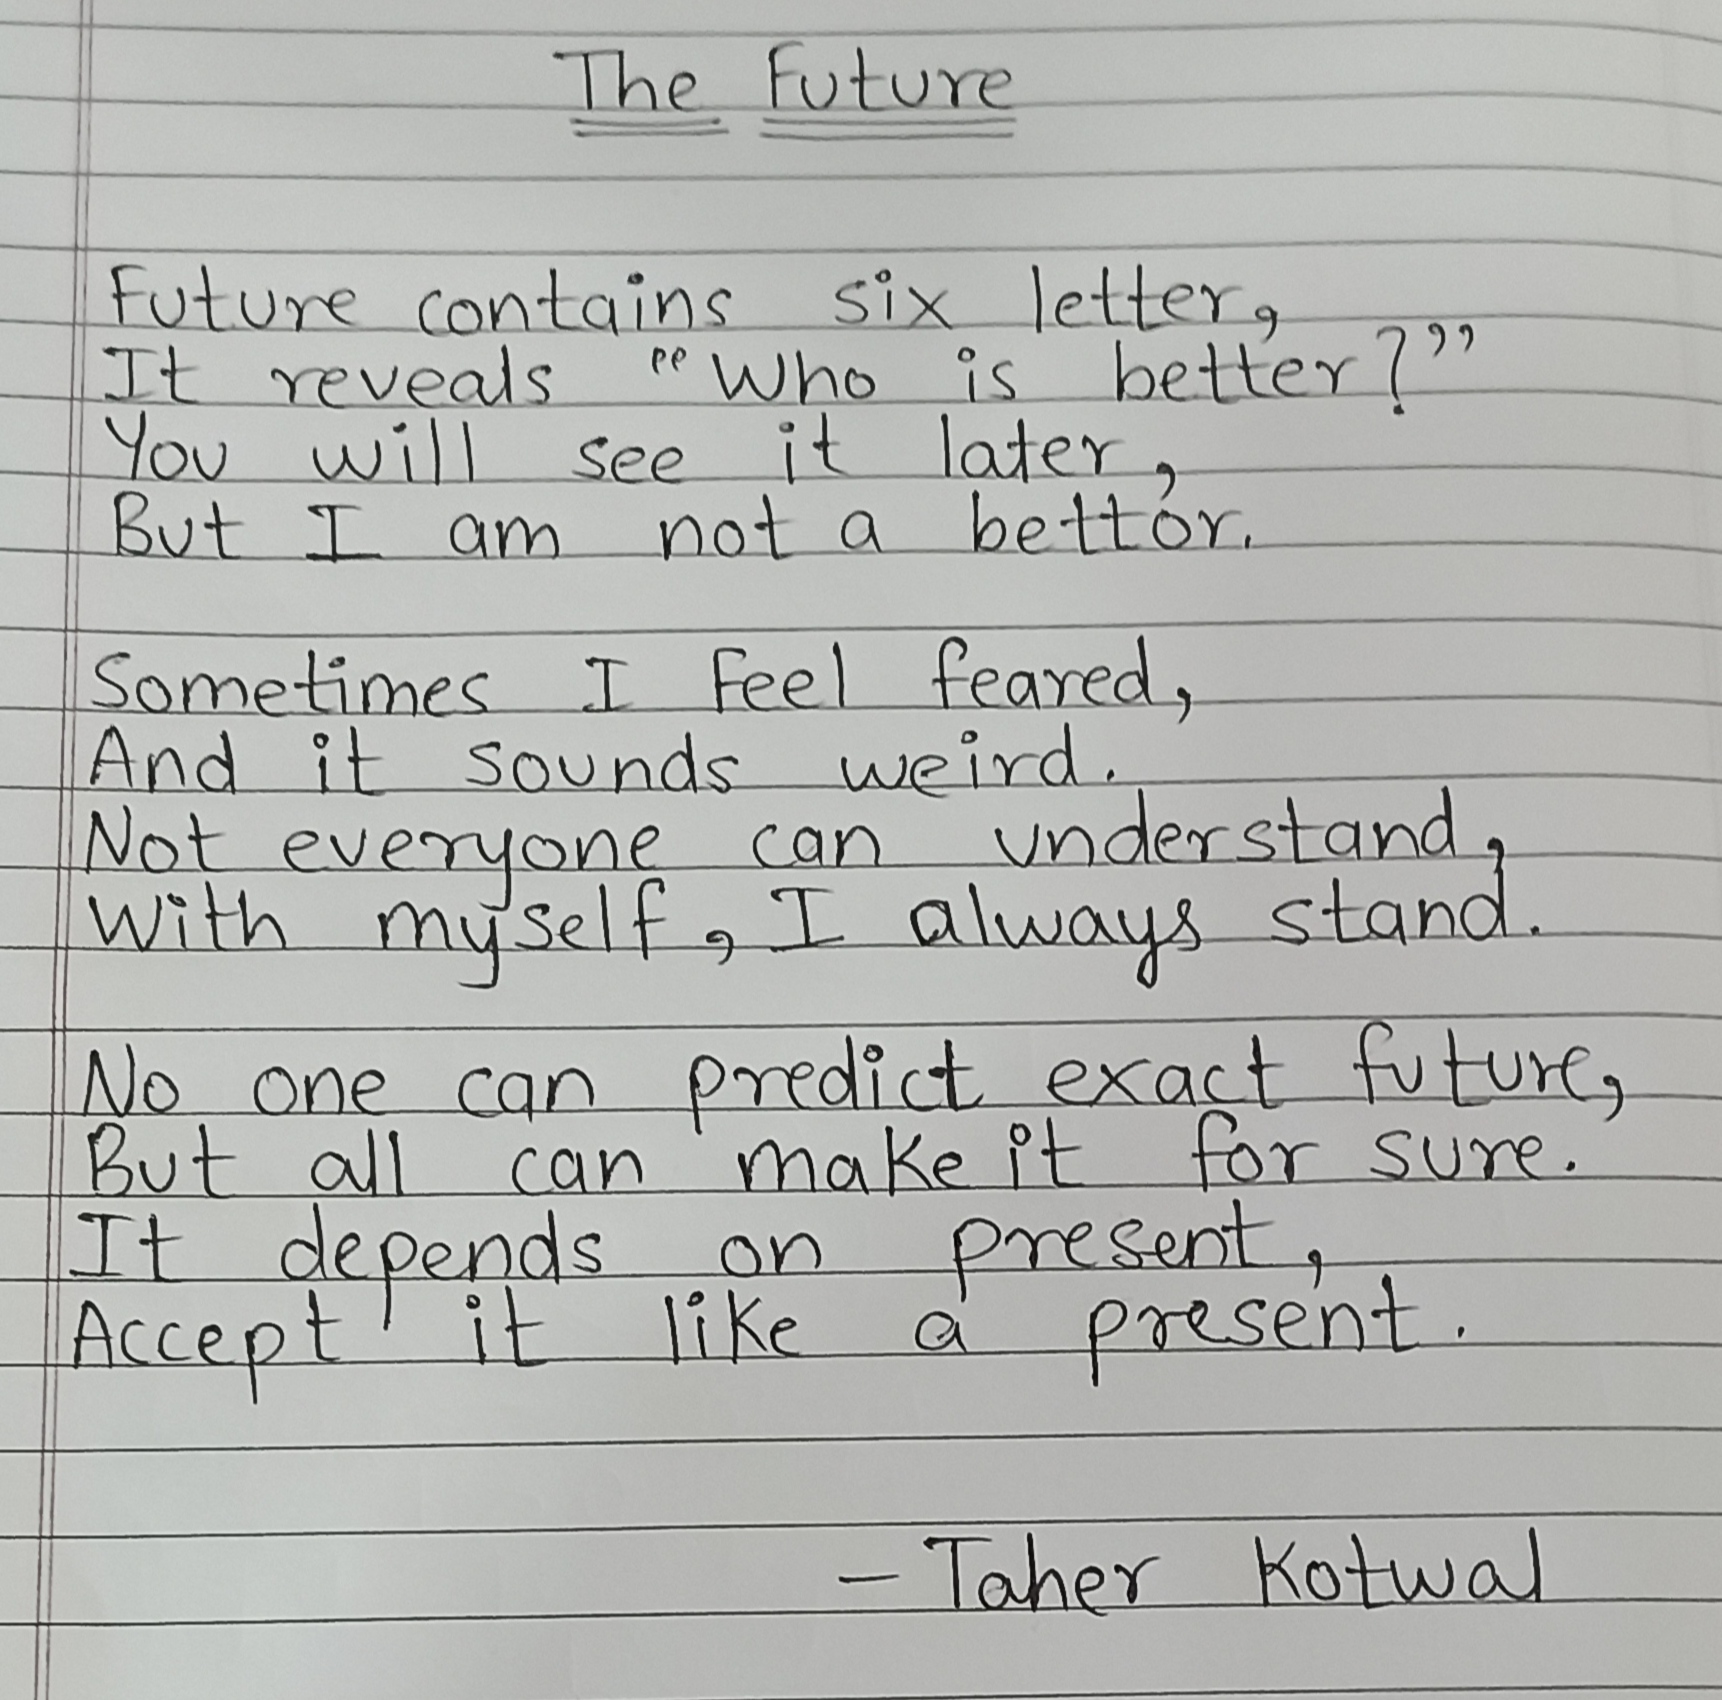 The Future
Future contains six letter,
It reveals "Who is better?"
You will see it later,
But I am not a bettor.
Sometimes I feel feared,
And it sounds weird.
Not everyone can understand,
With myself, I always stand.
No one can predict exact future,
But all can make it for sure.
It depends on present,
Accept it like a present.
- Taher Kotwal